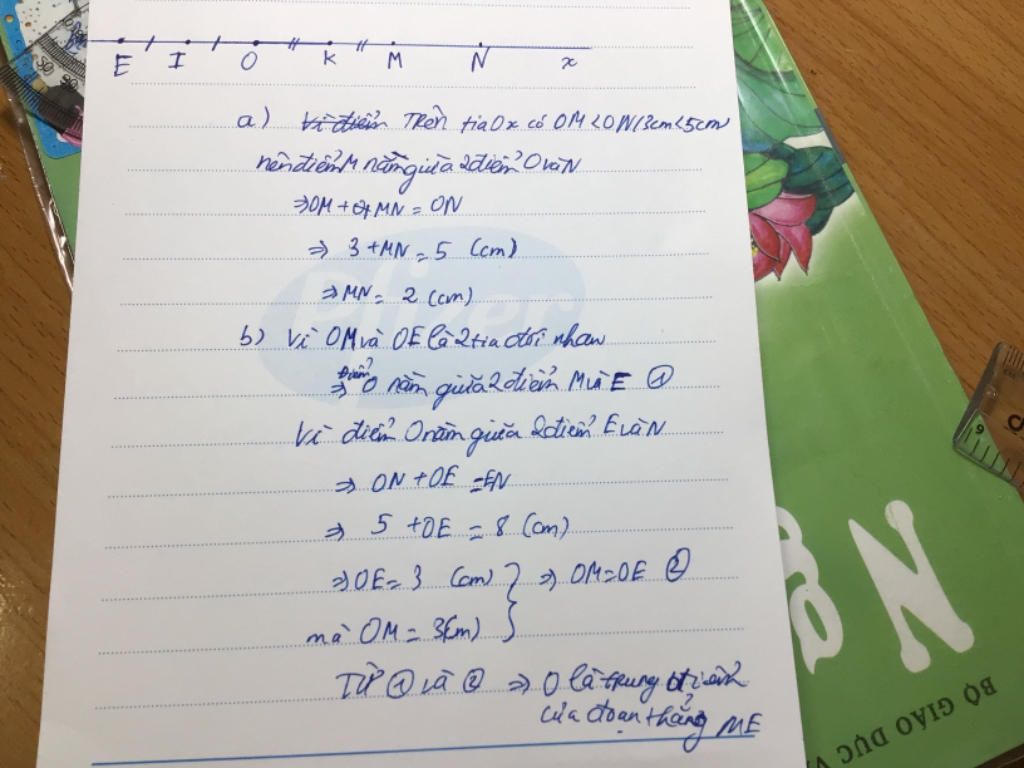 E I O K M N x
a) Vì điểm Trên tia Ox có OM < ON (3cm < 5cm
nên điểm M nằm giữa 2 điểm O và N
⇒ OM + MN = ON
⇒ 3 + MN = 5 (cm)
⇒ MN = 2 (cm)
b) Vì OM và OE là 2 tia đối nhau
⇒ điểm O nằm giữa 2 điểm M và E ①
Vì điểm O nằm giữa 2 điểm E và N
⇒ ON + OE = EN
⇒ 5 + OE = 8 (cm)
⇒ OE = 3 (cm) } ⇒ OM = OE ②
mà OM = 3(cm)
Từ ① và ② ⇒ O là trung điểm
của đoạn thẳng ME
elizer
N
BỘ GIÁO DỤC V
6